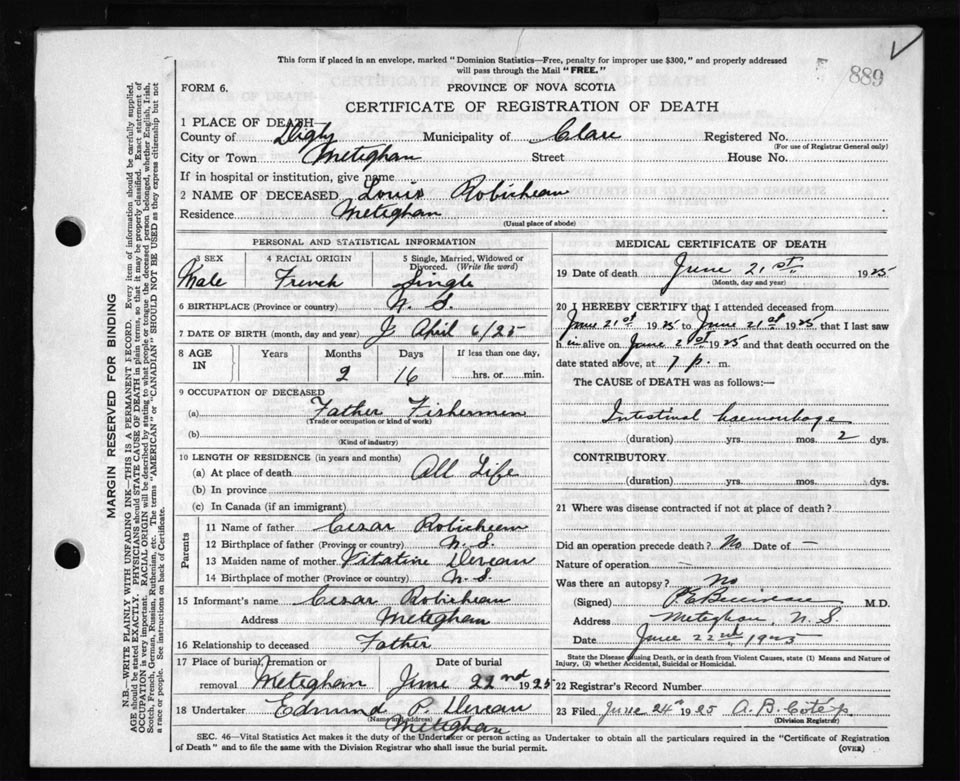 This form if placed in an envelope, marked "Dominion Statistics—Free, penalty for improper use $300," and properly addressed
will pass through the Mail "FREE."
889
FORM 6.
PROVINCE OF NOVA SCOTIA
CERTIFICATE OF REGISTRATION OF DEATH
1 PLACE OF DEATH—
County of Digby Municipality of Clare Registered No.
(For use of Registrar General only)
City or Town Meteghan Street House No.
If in hospital or institution, give name
2 NAME OF DECEASED Louis Robicheau
Residence Meteghan
(Usual place of abode)
PERSONAL AND STATISTICAL INFORMATION
3 SEX 4 RACIAL ORIGIN 5 Single, Married, Widowed or Divorced. (Write the word)
Male French Single
6 BIRTHPLACE (Province or country) N. S.
7 DATE OF BIRTH (month, day and year) April 6/25
8 AGE IN Years Months Days If less than one day,
2 16 hrs. or min.
9 OCCUPATION OF DECEASED
(a) Father Fishermen
(Trade or occupation or kind of work)
(b)
(Kind of industry)
10 LENGTH OF RESIDENCE (in years and months)
(a) At place of death All Life
(b) In province
(c) In Canada (if an immigrant)
Parents
11 Name of father Cezar Robicheau
12 Birthplace of father (Province or country) N. S.
13 Maiden name of mother Vitaline Deveau
14 Birthplace of mother (Province or country) N. S.
15 Informant's name Cezar Robicheau
Address Meteghan
16 Relationship to deceased Father
17 Place of burial, cremation or removal Meteghan Date of burial June 22nd 1925
18 Undertaker Edmund P. Deveau
(Name and address) Meteghan
MEDICAL CERTIFICATE OF DEATH
19 Date of death June 21st 1925
(Month, day and year)
20 I HEREBY CERTIFY that I attended deceased from
June 21st 1925 to June 21st 1925, that I last saw
him alive on June 21st 1925 and that death occurred on the
date stated above, at 7 p. m.
The CAUSE OF DEATH was as follows:—
Intestinal haemorhage
(duration) yrs. mos. 2 dys.
CONTRIBUTORY
(duration) yrs. mos. dys.
21 Where was disease contracted if not at place of death?
Did an operation precede death? No Date of —
Nature of operation —
Was there an autopsy? No
(Signed) M.D.
Address Meteghan, N. S.
Date June 22nd 1925
State the Disease causing Death, or in death from Violent Causes, state (1) Means and Nature of
Injury, (2) whether Accidental, Suicidal or Homicidal.
22 Registrar's Record Number
23 Filed June 24th 1925 A. B.
(Division Registrar)
SEC. 46—Vital Statistics Act makes it the duty of the Undertaker or person acting as Undertaker to obtain all the particulars required in the "Certificate of Registration
of Death" and to file the same with the Division Registrar who shall issue the burial permit.
(OVER)
MARGIN RESERVED FOR BINDING
N.B.—WRITE PLAINLY WITH UNFADING INK—THIS IS A PERMANENT RECORD. Every item of information should be carefully supplied.
AGE should be stated EXACTLY. PHYSICIANS should STATE CAUSE OF DEATH in plain terms, so that it may be properly classified. Exact statement of
OCCUPATION is very important. RACIAL ORIGIN will be described by stating to what people or tongue the deceased person belonged, whether English, Irish,
Scotch, French, German, Russian, Ruthenian, etc. The terms "AMERICAN" or "CANADIAN" SHOULD NOT BE USED as they express citizenship but not
a race or people. See instructions on back of Certificate.